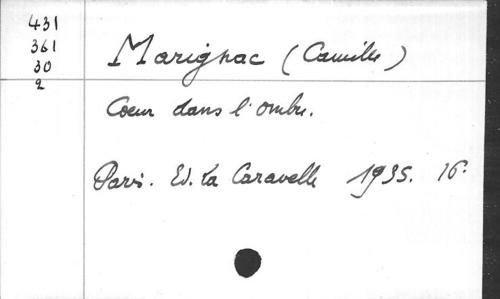 431
361
30
2
Marignac (Camille)
Coeur dans l'ombre.
Paris. Ed. La Caravelle 1935. 16°